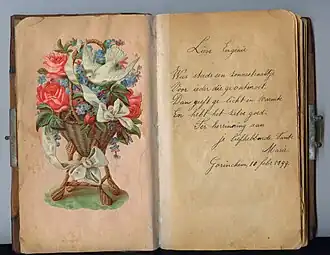 Lieve Eugenie
Wees steeds een zonnestraaltje
Voor ieder die je ontmoet.
Dan geeft ge licht en warmte
En hebt het zelve goed.
Ter herinnering aan
je liefhebbende tante
Marie
Gorinchem, 10 febr. 1899.